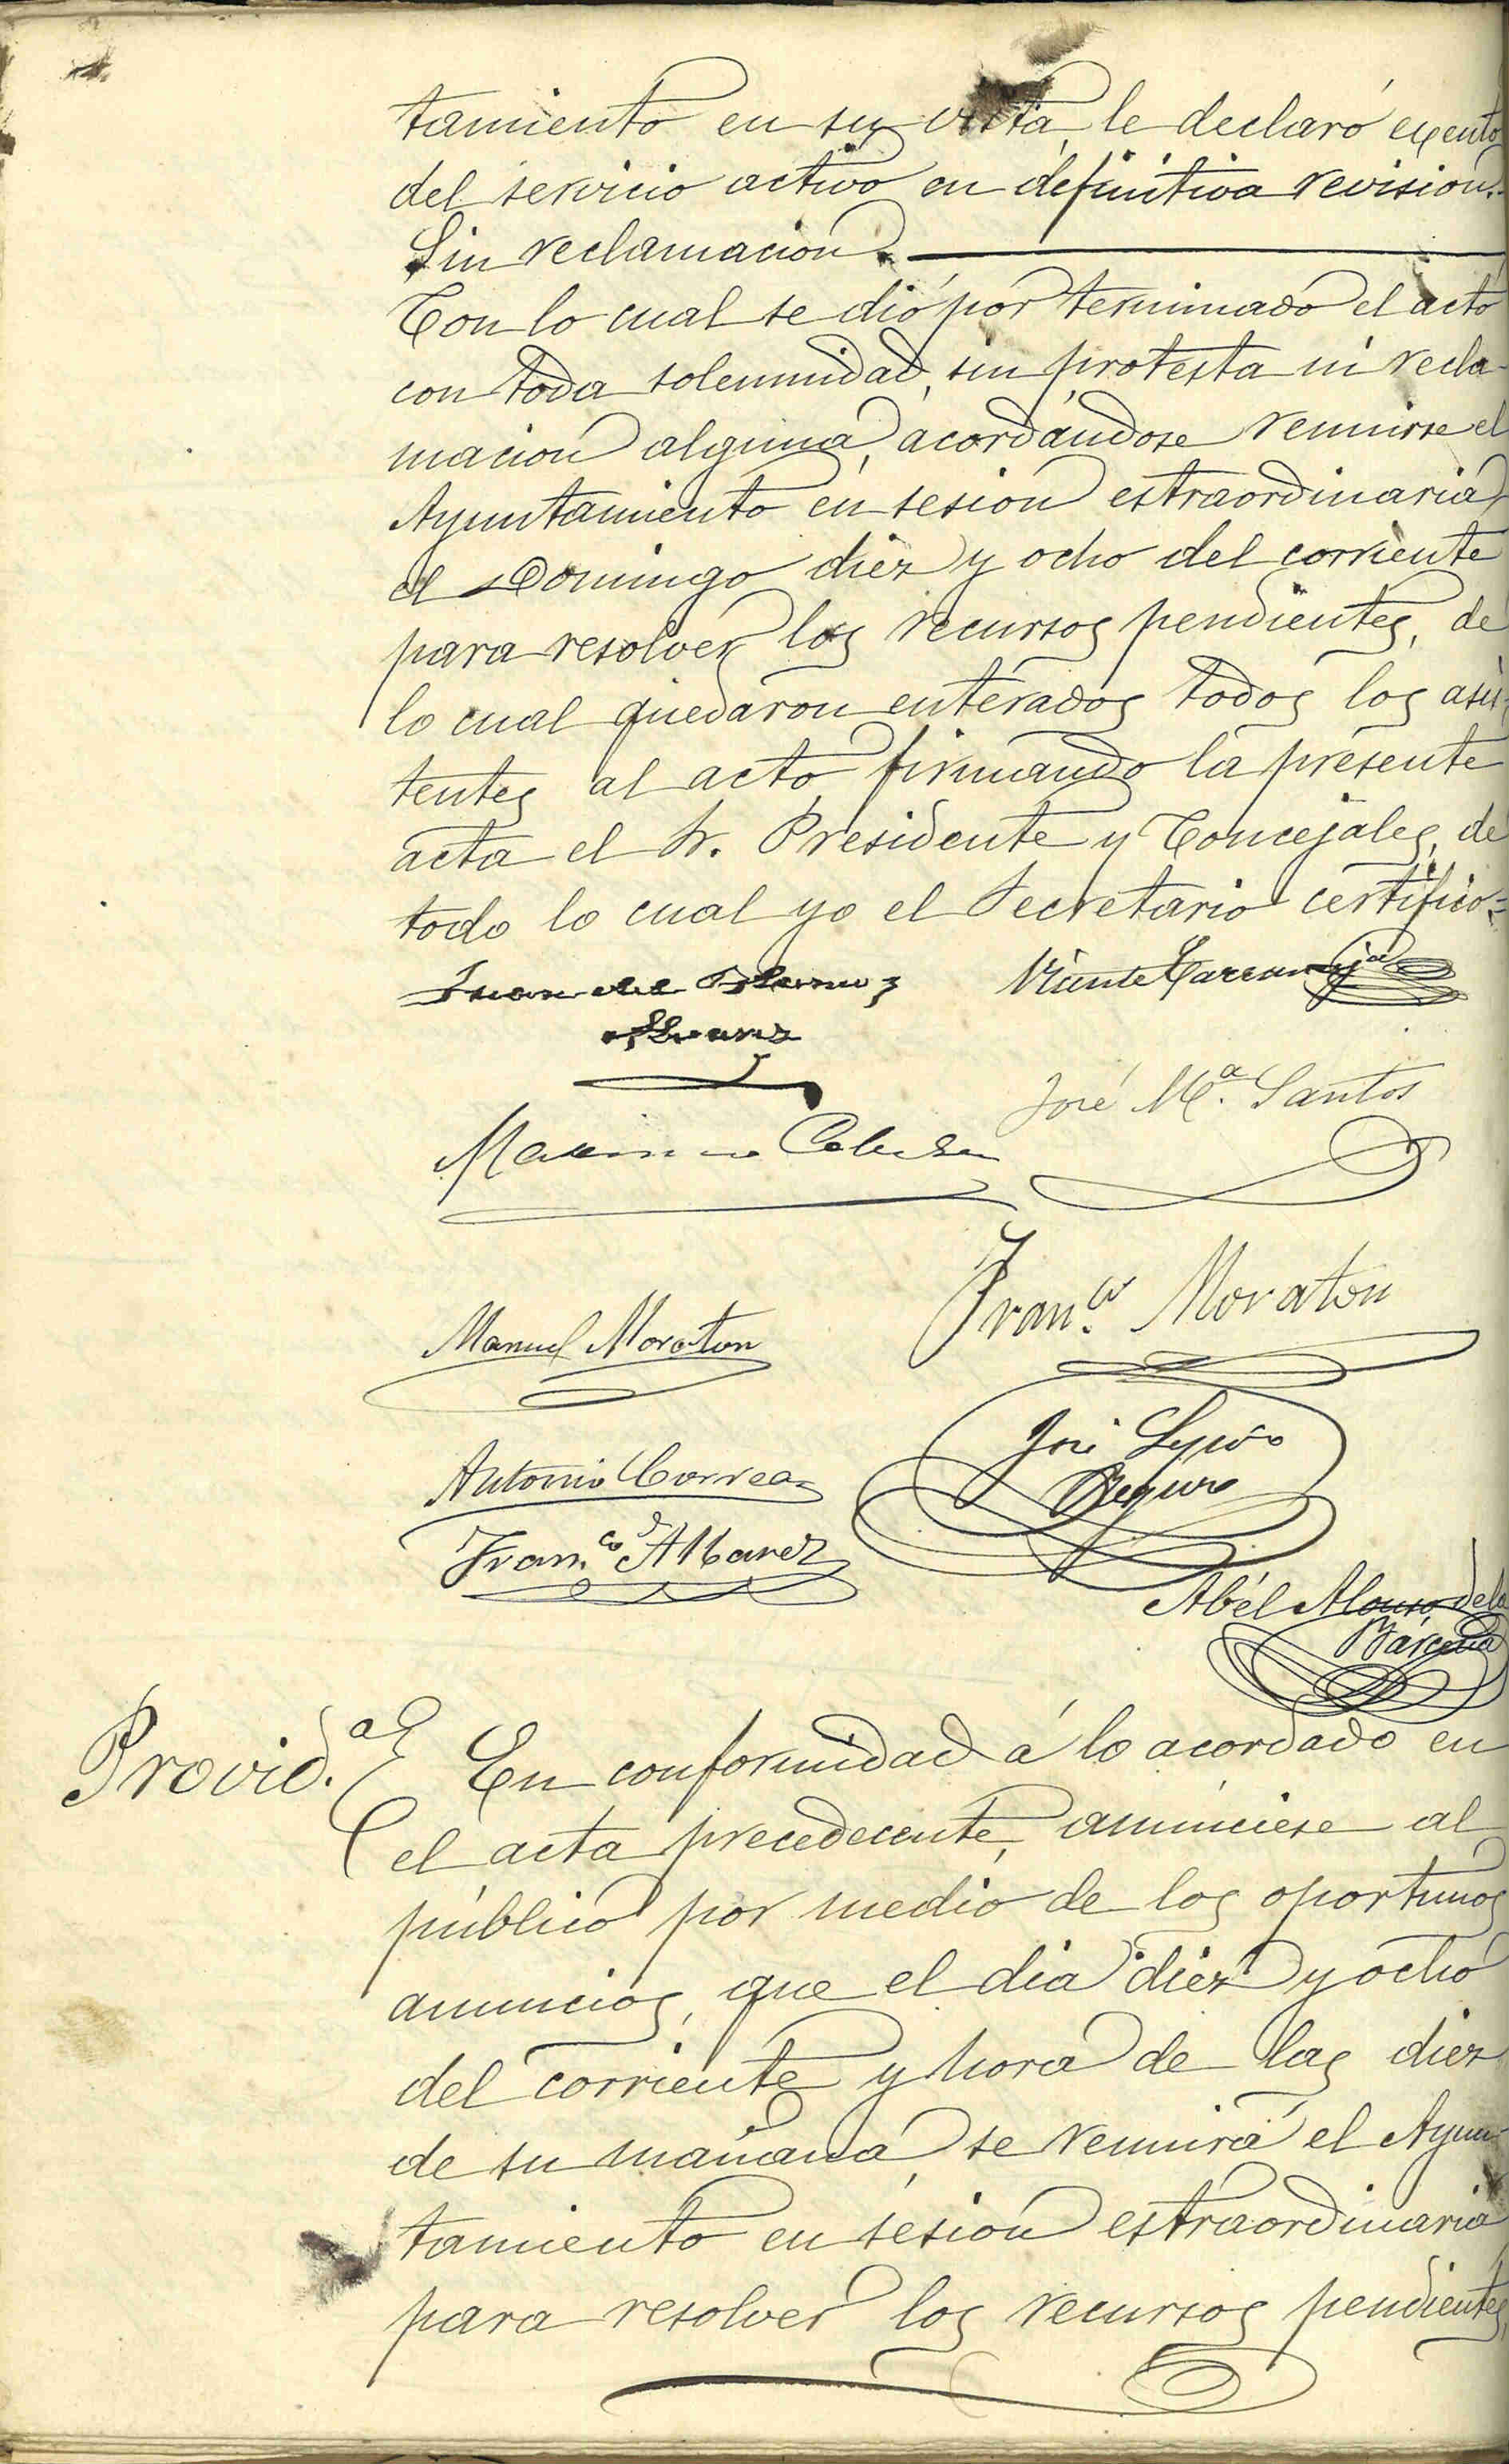 tamiento en su vista, le declaró exento
del servicio activo en definitiva revision.
Sin reclamacion.
Con lo cual se dió por terminado el acto
con toda solemnidad, sin protesta ni recla-
macion alguna, acordándose reunirse el
Ayuntamiento en sesion estraordinaria
el Domingo diez y ocho del corriente
para resolver los recursos pendientes, de
lo cual quedaron enterados todos los asis-
tentes al acto, firmando la presente
acta el Sr. Presidente y Concejales, de
todo lo cual yo el Secretario certifico=
Vicente
José Mª. Santos
Manuel Moraton
Fran.co Moraton
Antonio Correa
José
Seguro
Fran.co Albarez
Abél Alonso de la
Bárcena
Provid.a En conformidad á lo acordado en
el acta precedecente, anúnciese al
público por medio de los oportunos
anuncios, que el dia diez y ocho
del corriente y hora de las diez
de su mañana, se reunirá el Ayun-
tamiento en sesion estraordinaria
para resolver los recursos pendientes,